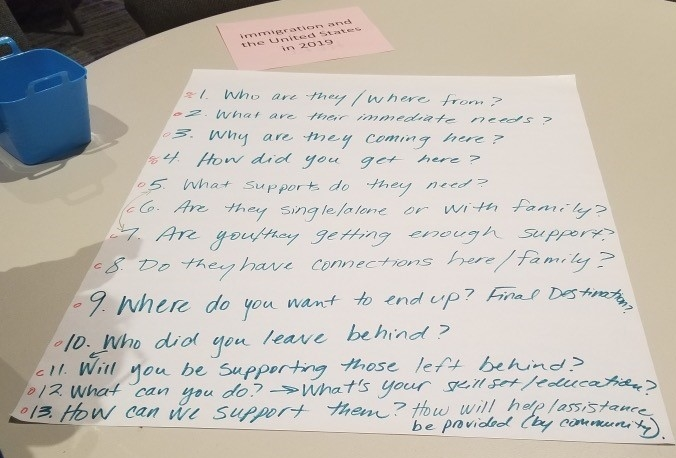 immigration and
the United States
in 2019
1. Who are they / Where from?
2. What are their immediate needs?
3. Why are they coming here?
4. How did you get here?
5. What supports do they need?
6. Are they single/alone or with family?
7. Are you/they getting enough support?
8. Do they have connections here/family?
9. Where do you want to end up? Final Destination?
10. Who did you leave behind?
11. Will you be supporting those left behind?
12. What can you do? → What's your skillset/education?
13. How can we support them? How will help/assistance
be provided (by community).